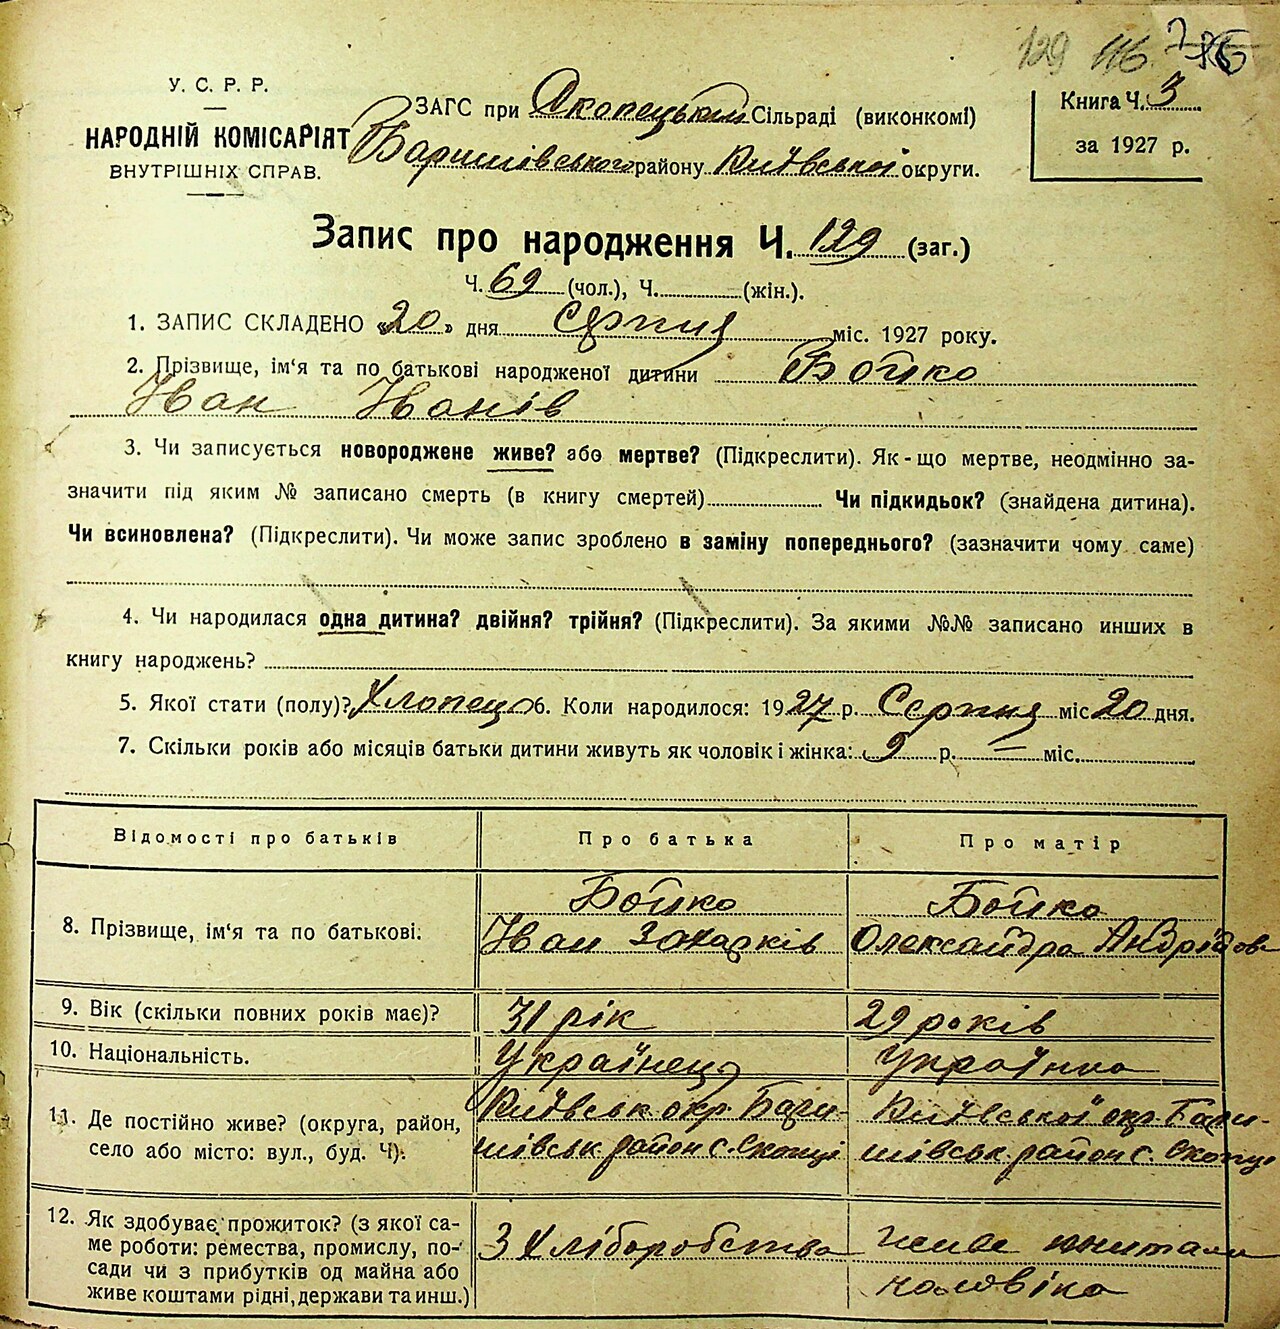 129 116
У. С. Р. Р.
НАРОДНІЙ КОМІСАРІЯТ
ВНУТРІШНІХ СПРАВ.
ЗАГС при Скопецький Сільраді (виконкомі)
Баришівського району Київської округи.
Книга Ч. 3
за 1927 р.
Запис про народження Ч. 129 (заг.)
Ч. 69 (чол.), Ч. (жін.).
1. ЗАПИС СКЛАДЕНО «20» дня Серпня міс. 1927 року.
2. Прізвище, ім'я та по батькові народженої дитини Бойко
Іван Іванів
3. Чи записується новороджене живе? або мертве? (Підкреслити). Як-що мертве, неодмінно за-
значити під яким № записано смерть (в книгу смертей) Чи підкидьок? (знайдена дитина).
Чи всиновлена? (Підкреслити). Чи може запис зроблено в заміну попереднього? (зазначити чому саме)
4. Чи народилася одна дитина? двійня? трійня? (Підкреслити). За якими №№ записано инших в
книгу народжень?
5. Якої стати (полу)? Хлопець 6. Коли народилося: 1927 р. Серпня міс 20 дня.
7. Скільки років або місяців батьки дитини живуть як чоловік і жінка: 9 р. — міс.
Відомості про батьків Про батька Про матір
8. Прізвище, ім'я та по батькові.
Бойко
Іван Захарків
Бойко
Олександра Андріїова
9. Вік (скільки повних років має)? 31 рік 29 років
10. Національність. Українець Українка
11. Де постійно живе? (округа, район,
село або місто: вул., буд. Ч).
Київськ окр. Бари-
шівськ район с. Скопці
Київської окр. Бари-
шівськ район с. Скопці
12. Як здобуває прожиток? (з якої са-
ме роботи: ремества, промислу, по-
сади чи з прибутків од майна або
живе коштами рідні, держави та инш.)
З Хліборобства
живе коштами
чоловіка